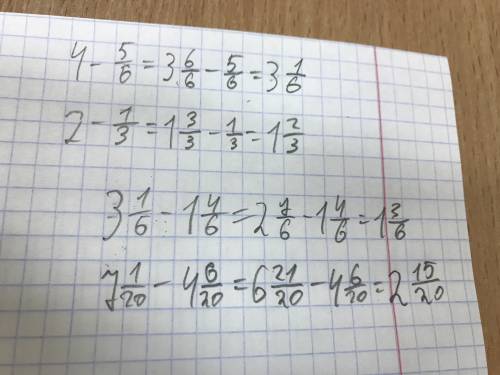 4 - 5/6 = 3 6/6 - 5/6 = 3 1/6
2 - 1/3 = 1 3/3 - 1/3 = 1 2/3
3 1/6 - 1 4/6 = 2 7/6 - 1 4/6 = 1 3/6
7 1/20 - 4 6/20 = 6 21/20 - 4 6/20 = 2 15/20